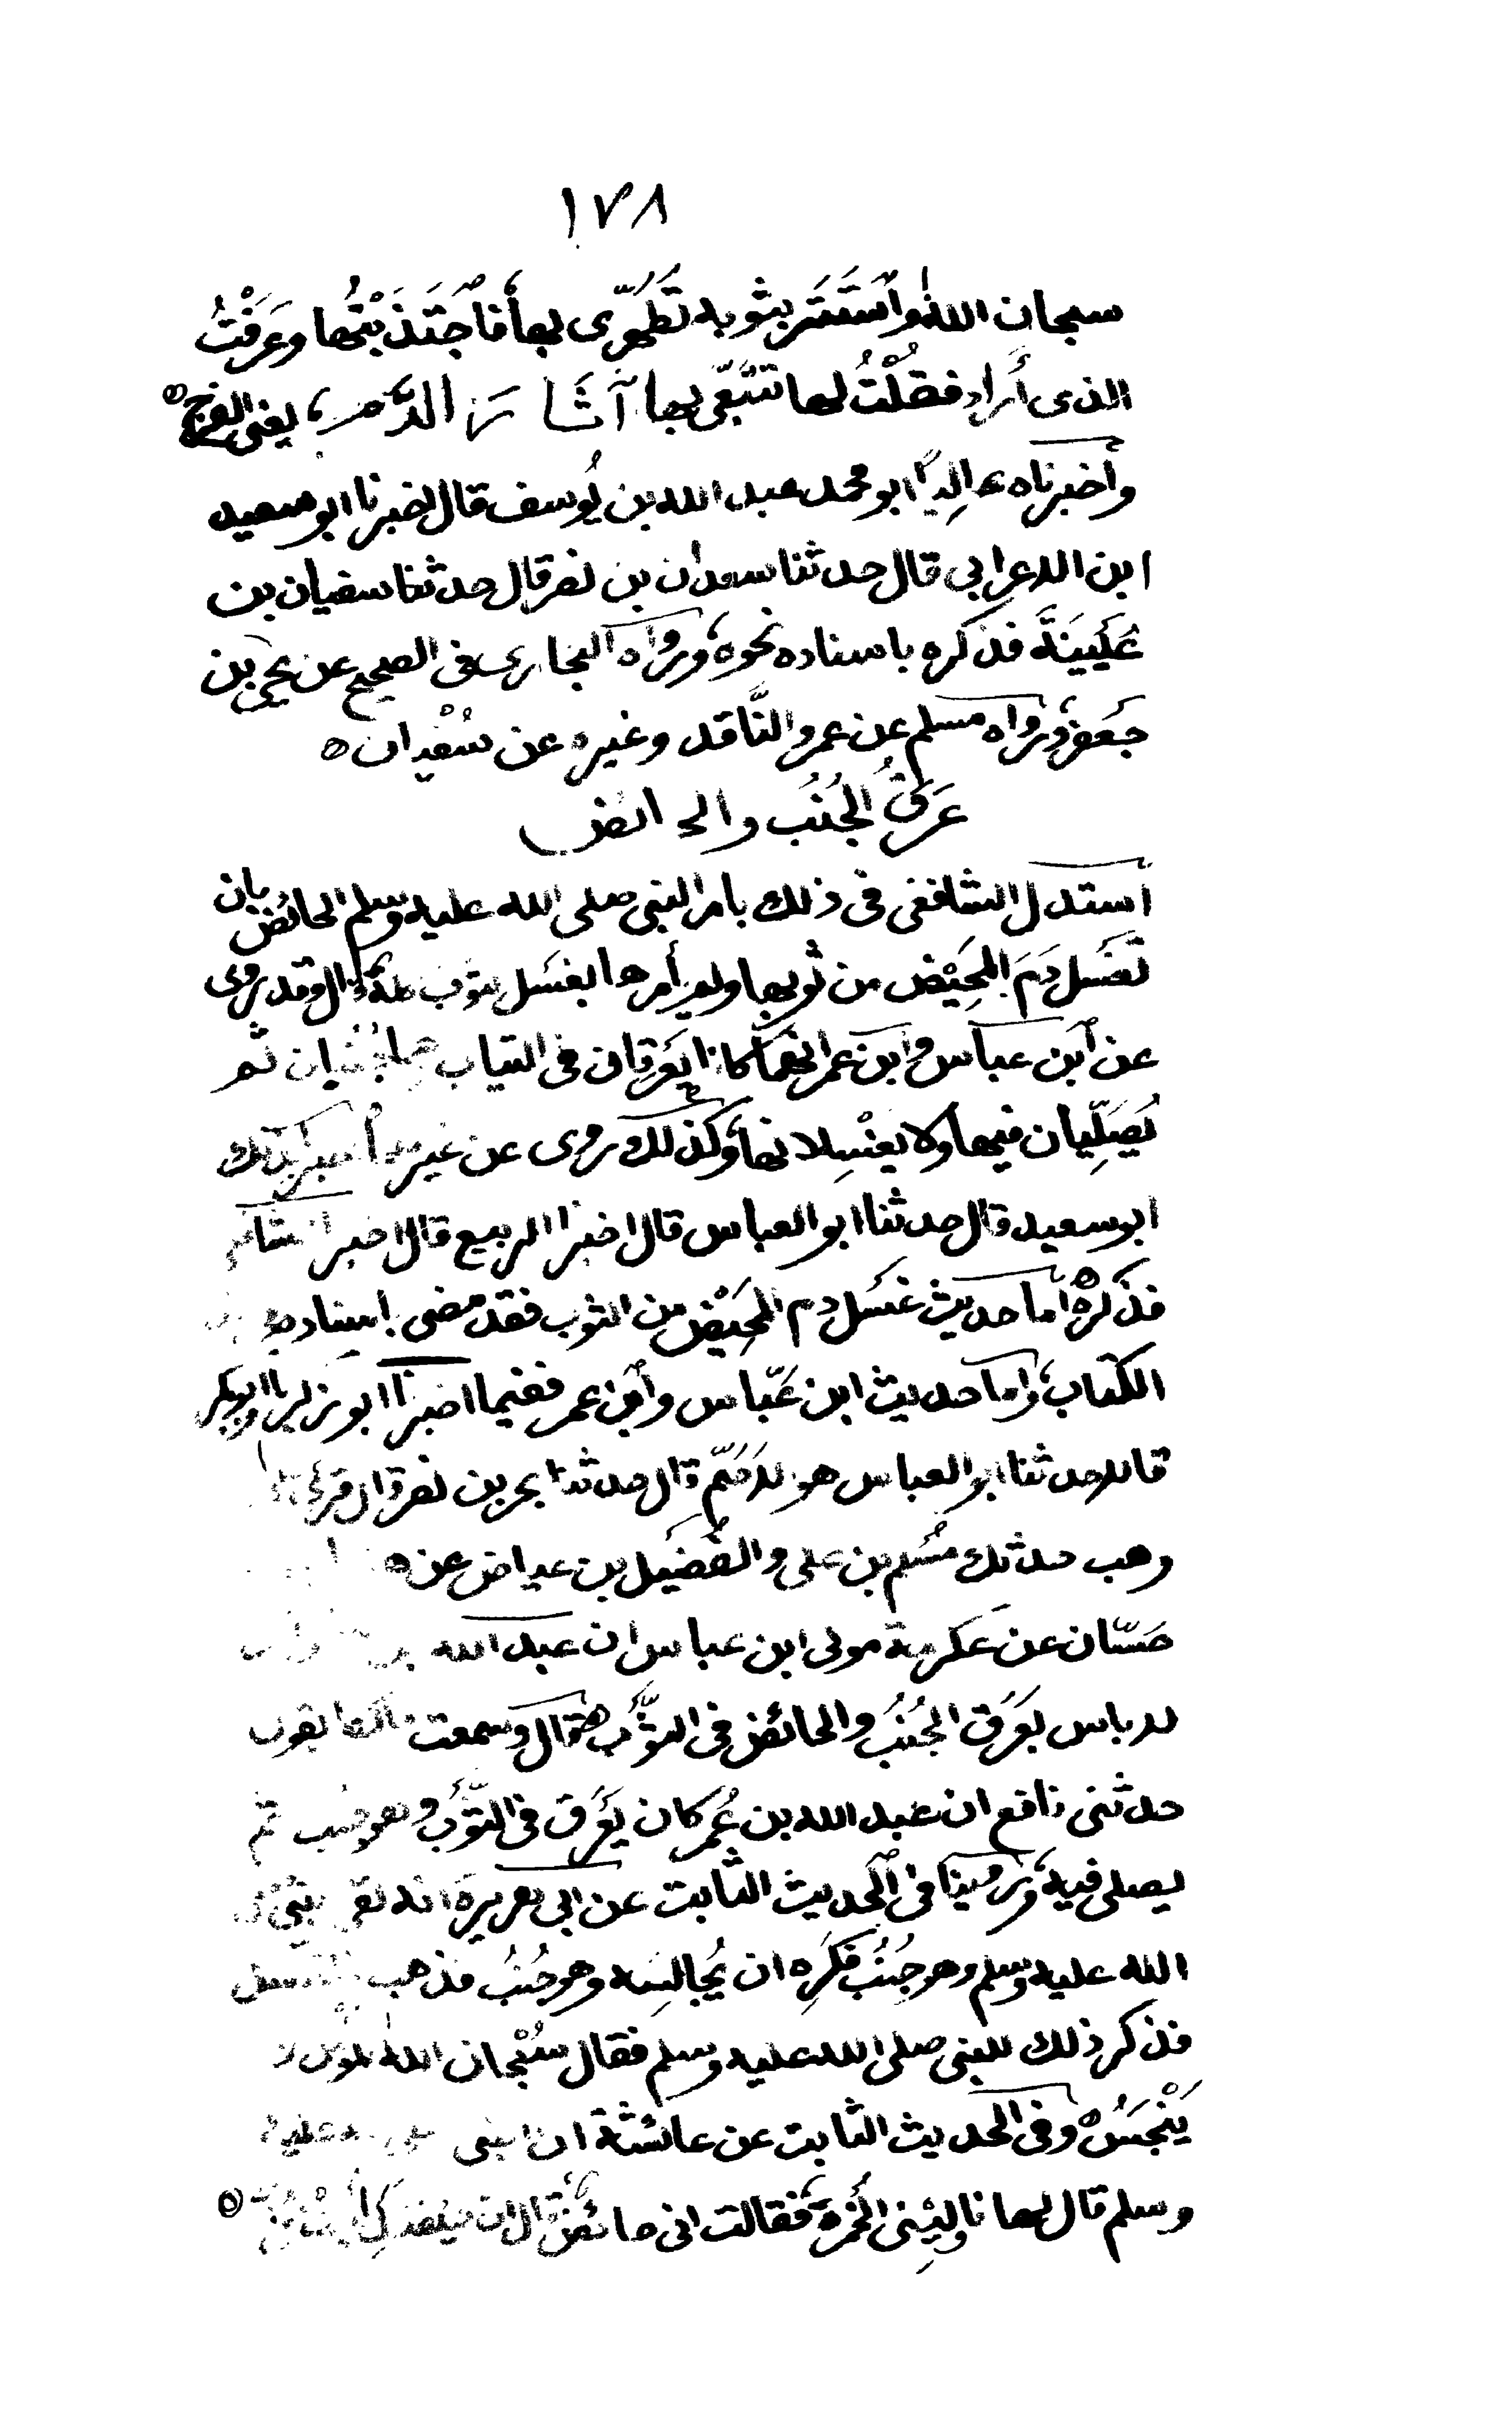 ١٧٨
سبحان الله واستتر بثوبه تَطَهَّرِى بها فاجتَذَبْتُها وعَرَفْتُ
الذى أراد فقلْتُ لها تتبَّعى بها آثَارَ الدَّمِ، يعنى الفرج ه
وأخبرناه عاليًا ابو محمد عبد الله بن يُوسف قال اخبرنا ابو سعيد
ابن الاعرابى قال حدثنا سعدان بن نصر قال حدثنا سفيان بن
عُيَيْنَةَ فذكره باسناده نحوه، ورواه البخارى فى الصحيح عن يحيى بن
جَعفر، ورواه مسلم عن عمرو النَّاقد وغيره عن سُفْيان ه
عَرَقُ الجُنُبِ والحائض
استدل الشافعى فى ذلك بامر النبى صلى الله عليه وسلم الحائض بان
تَغسَل دَمَ المَحِيْض من ثوبها ولم يأمرها بغسل ثوب كله قال وقد روى
عن ابن عباس وابن عمر انهما كانا يَعْرَقان فى الثياب وهما جُنُبان ثم
يُصَلِّيان فيها ولا يغْسِلانها، وكذلك روى عن غيرهما أخبرنا بذلك
ابو سعيد قال حدثنا ابو العباس قال اخبرنا الربيع قال اخبرنا الشافعى
فذكره ه أما حديث غسَل دم المَحِيْض من الثوب فقد مضى باسناده
الكتاب، واما حديث ابن عَبّاس وابن عمر ففيما اخبرنا ابو زكريا وابو بكر
قالا حدثنا ابو العباس هو الاصَمّ قال حدثنا بحر بن نصر قال قرئ على
وهب حدثك مَسْلمة بن على والفُضَيل بن عياض عن ه
حَسّان عن عَكرمة مولى ابن عباس ان عبد الله بن
لا باس بعَرَق الجُنُبِ والحائض فى الثَّوبِ ه قال وسمعت مالكا يقول
حدثنى نافع ان عبد الله بن عُمَر كان يَعْرَق فى الثَّوْبِ وهو جنب ثم
يصلى فيه، وروينا فى الحديث الثابت عن ابى هريرة انه لقى النبى
الله عليه وسلم وهو جُنُبٌ فكَرِه ان يُجالسَه وهو جُنُبٌ فذهب فاغتسل
فذكر ذلك للنبى صلى الله عليه وسلم فقال سُبْحان الله المؤمن لا
يَنْجَسُ ه وفى الحديث الثابت عن عائشة ان النبى صلى الله عليه
وسلم قال لها نَاوِلِيْنى الخُمْرَة، فقالت انى حائض قال ان حيضتكِ ليستْ ه